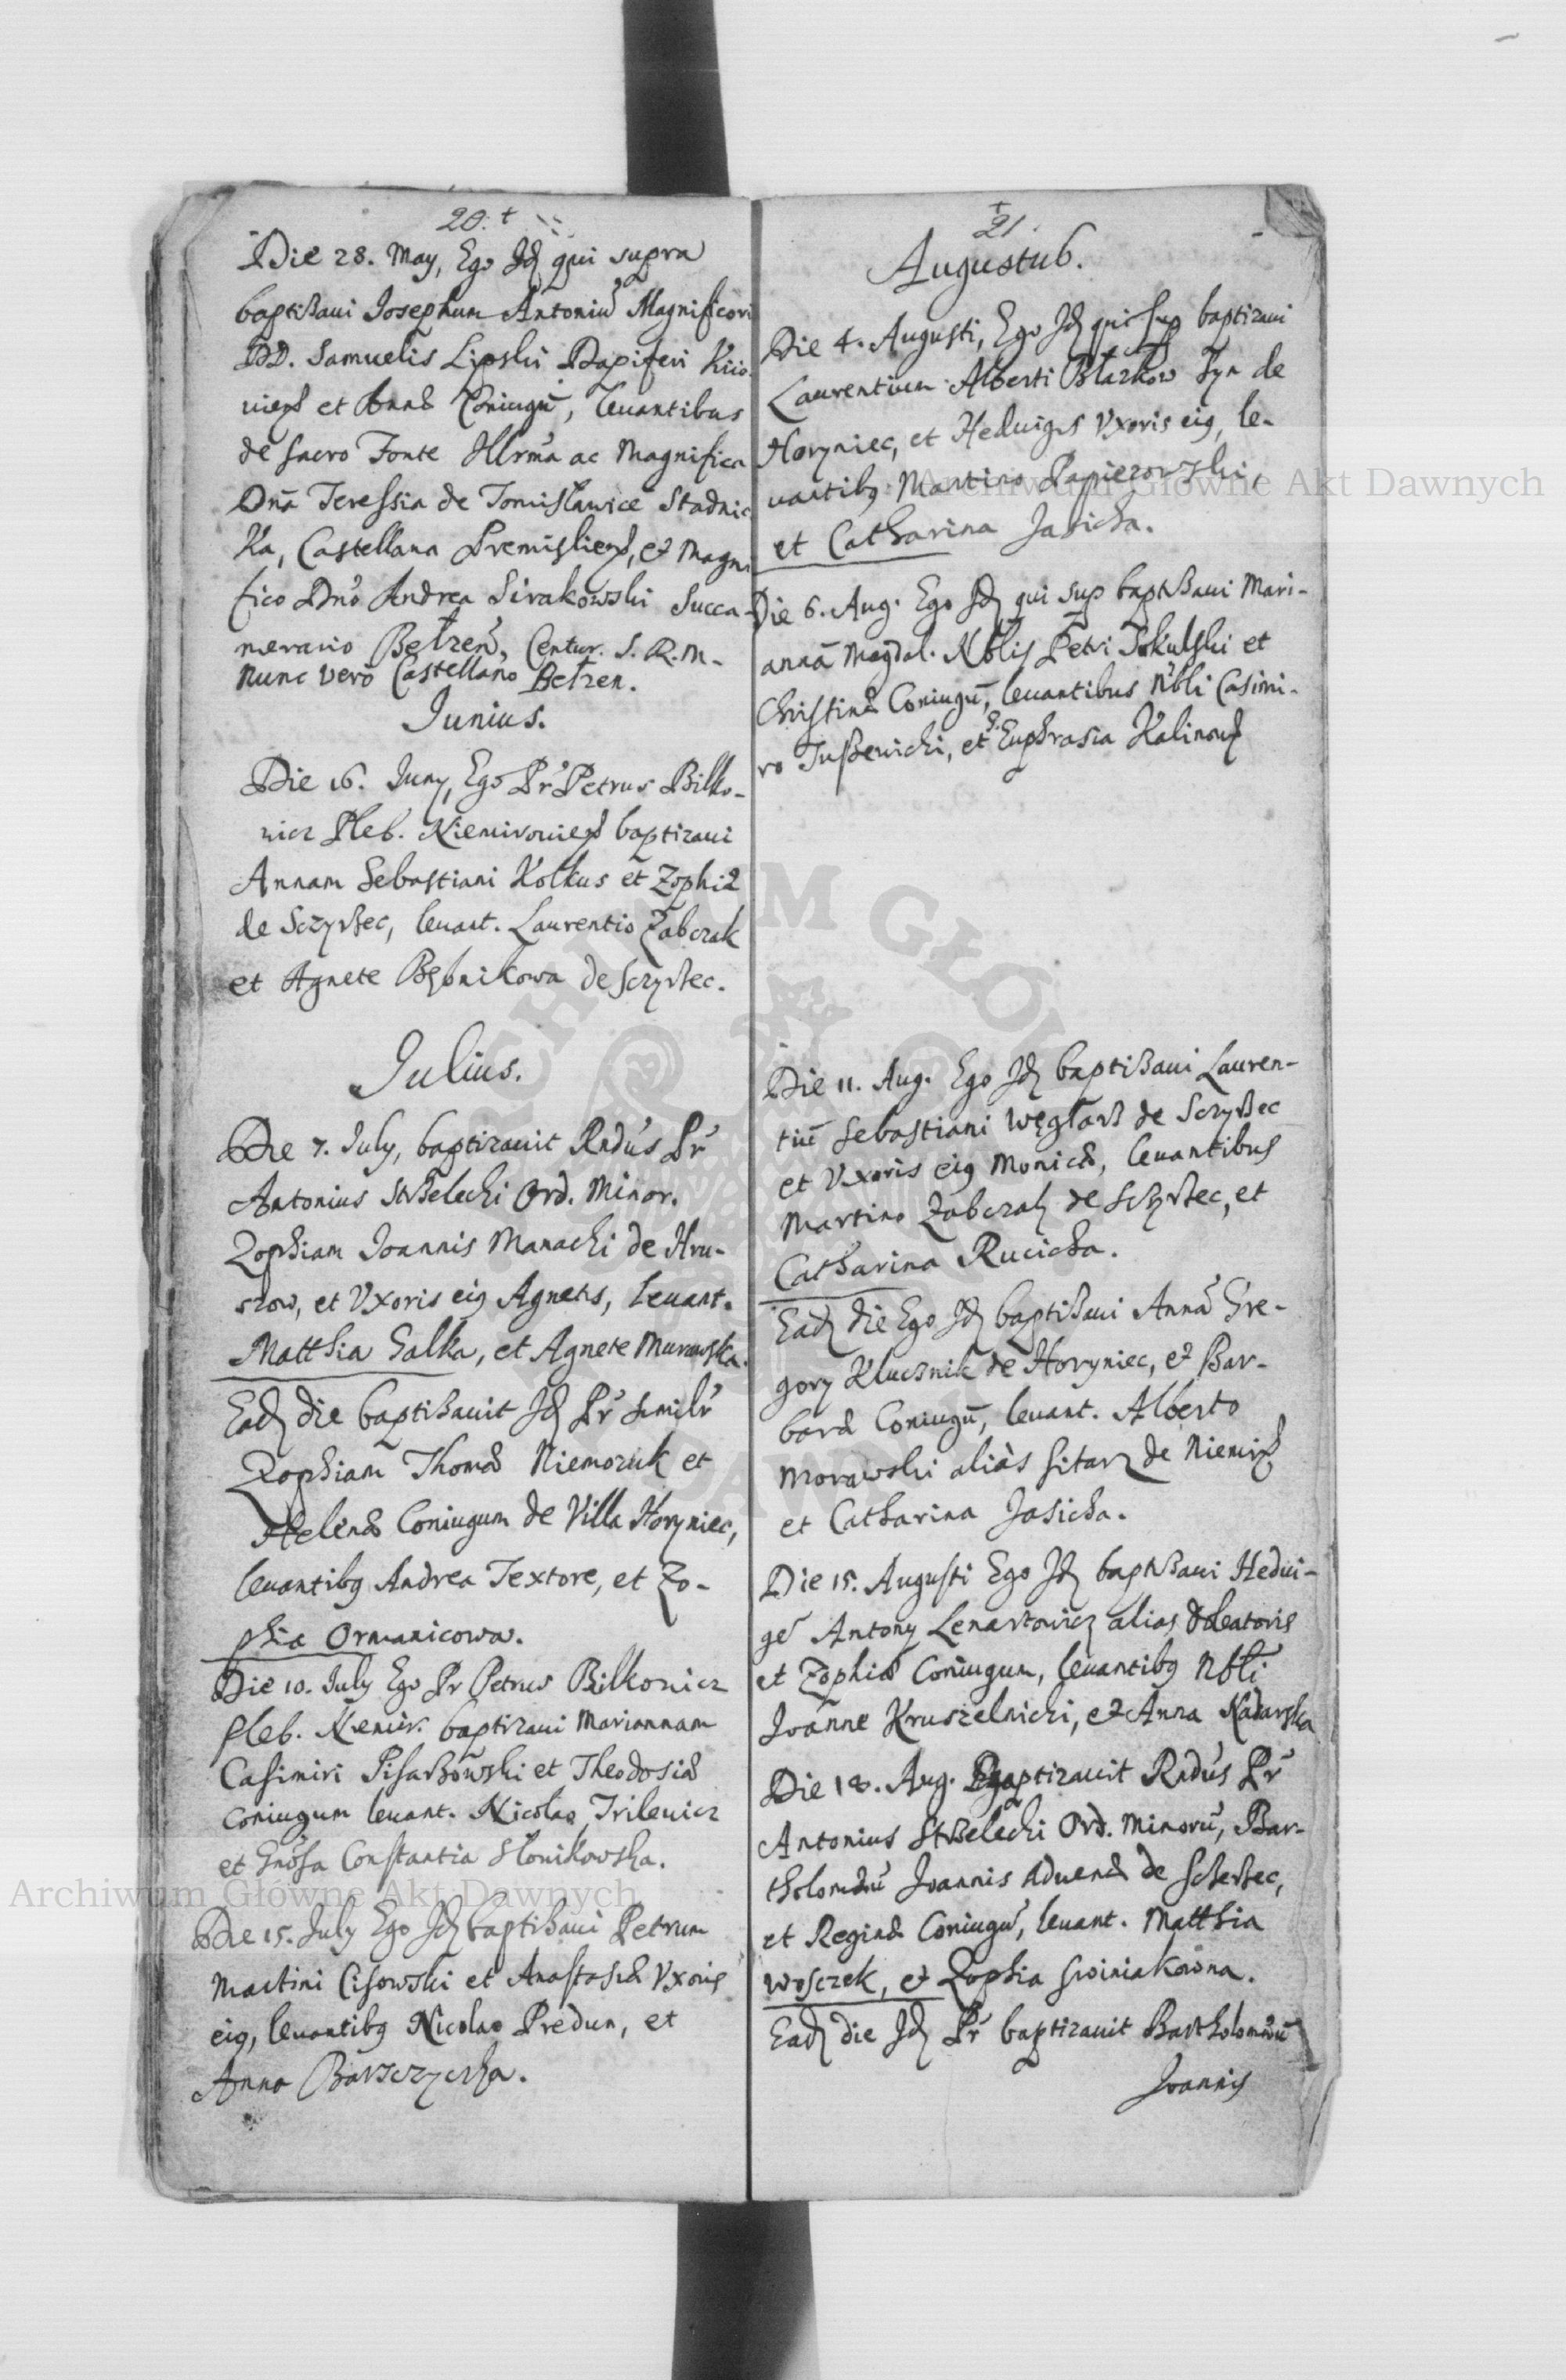 20. +
Die 28. May, Ego Jd qui supra
baptisaui Josephum Antoniu Magnificor
DD. Samuelis Lipski Dapiferi Kiio
uien et Annæ Coniugū, leuantibus
de sacro Fonte Illrma ac Magnifica
Dna Teressia de Tomislawice Stadnic
ka, Castellana Premislien, et Magni
fico Dno Andrea Sirakowski Succa-
merario Betzen, Centur. S. R. M.
Nunc vero Castellano Betzen.
Junius.
Die 16. Juny, Ego Pr Petrus Bilko-
wicz Pleb. Niemirouien baptizaui
Annam Sebastiani Kotkus et Zophiæ
de Sczyrzec, leuant. Laurentio Zabczak
et Agnete Bębnikowa de Sczyrzec.
Julius.
Die 7. July, baptizauit Rndus Pr
Antonius Strzelecki Ord. Minor.
Zophiam Joannis Manacki de Hru-
szow, et Uxoris eius Agnetis, leuant.
Matthia Galka, et Agnete Murawska.
Ead die baptisauit Jd Pr similr
Zophiam Thomæ Niemozuk et
Helenæ Coniugum de Villa Horyniec,
leuantibus Andrea Textore, et Zo-
phia Ormanicowa.
Die 10. July Ego Pr Petrus Bilkowicz
Pleb. Nemir. baptizaui Mariannam
Casimiri Pisarzowski et Theodosiæ
Coniugum leuant. Nicolao Trileuicz
et Gnosa Constantia Slonikowska.
Die 15. July Ego Jd baptisaui Petrum
Martini Cisowski et Anastasiæ Uxoris
eius, leuantibus Nicolao Predun, et
Anna Barszczycha.
+
21.
Augustus.
Die 4. Augusti, Ego Jd qui sup baptizaui
Laurentium Alberti Blazkow Syn de
Horyniec, et Heduigis Uxoris eius, le-
uantibus Martino Papierowski,
et Catharina Jasicha.
Die 6. Aug. Ego Jd qui sup baptisaui Mari-
annā Magdal. Nblis Petri Sokulski et
Christinæ Coniugū, leuantibus Nbli Casimi-
ro Juszewichi, et G. Euphrasia Kalinows
Die 11. Aug. Ego Jd baptisaui Lauren-
tiū Sebastiani Węglarz de Sczyrzec
et Uxoris eius Monicæ, leuantibus
Martino Zabczak de Sczyrzec, et
Catharina Rucicha.
Ead die Ego Jd baptisaui Annā Gre-
gory Klucznik de Horyniec, et Bar-
baræ Coniugū, leuant. Alberto
Morawski aliàs sitarz de Niemir
et Catharina Jasicha.
Die 15. Augusti Ego Jd baptisaui Hedui-
gē Antony Lenartowicz alias
et Zophiæ Coniugum, leuantibus Nbli
Joanne Kruszelnicki, et Anna Nadarska
Die 18. Aug. baptizauit Rndus Pr
Antonius Strzelecki Ord. Minorū, Bar-
tholomæū Joannis Aduenæ de Sczerzec,
et Reginæ Coniugū, leuant. Matthia
Wosczek, et Zophia swiniakowna.
Ead die Jd Pr baptizauit Bartholomæū
Joannis
Archiwum Główne Akt Dawnych
Archiwum Główne Akt Dawnych